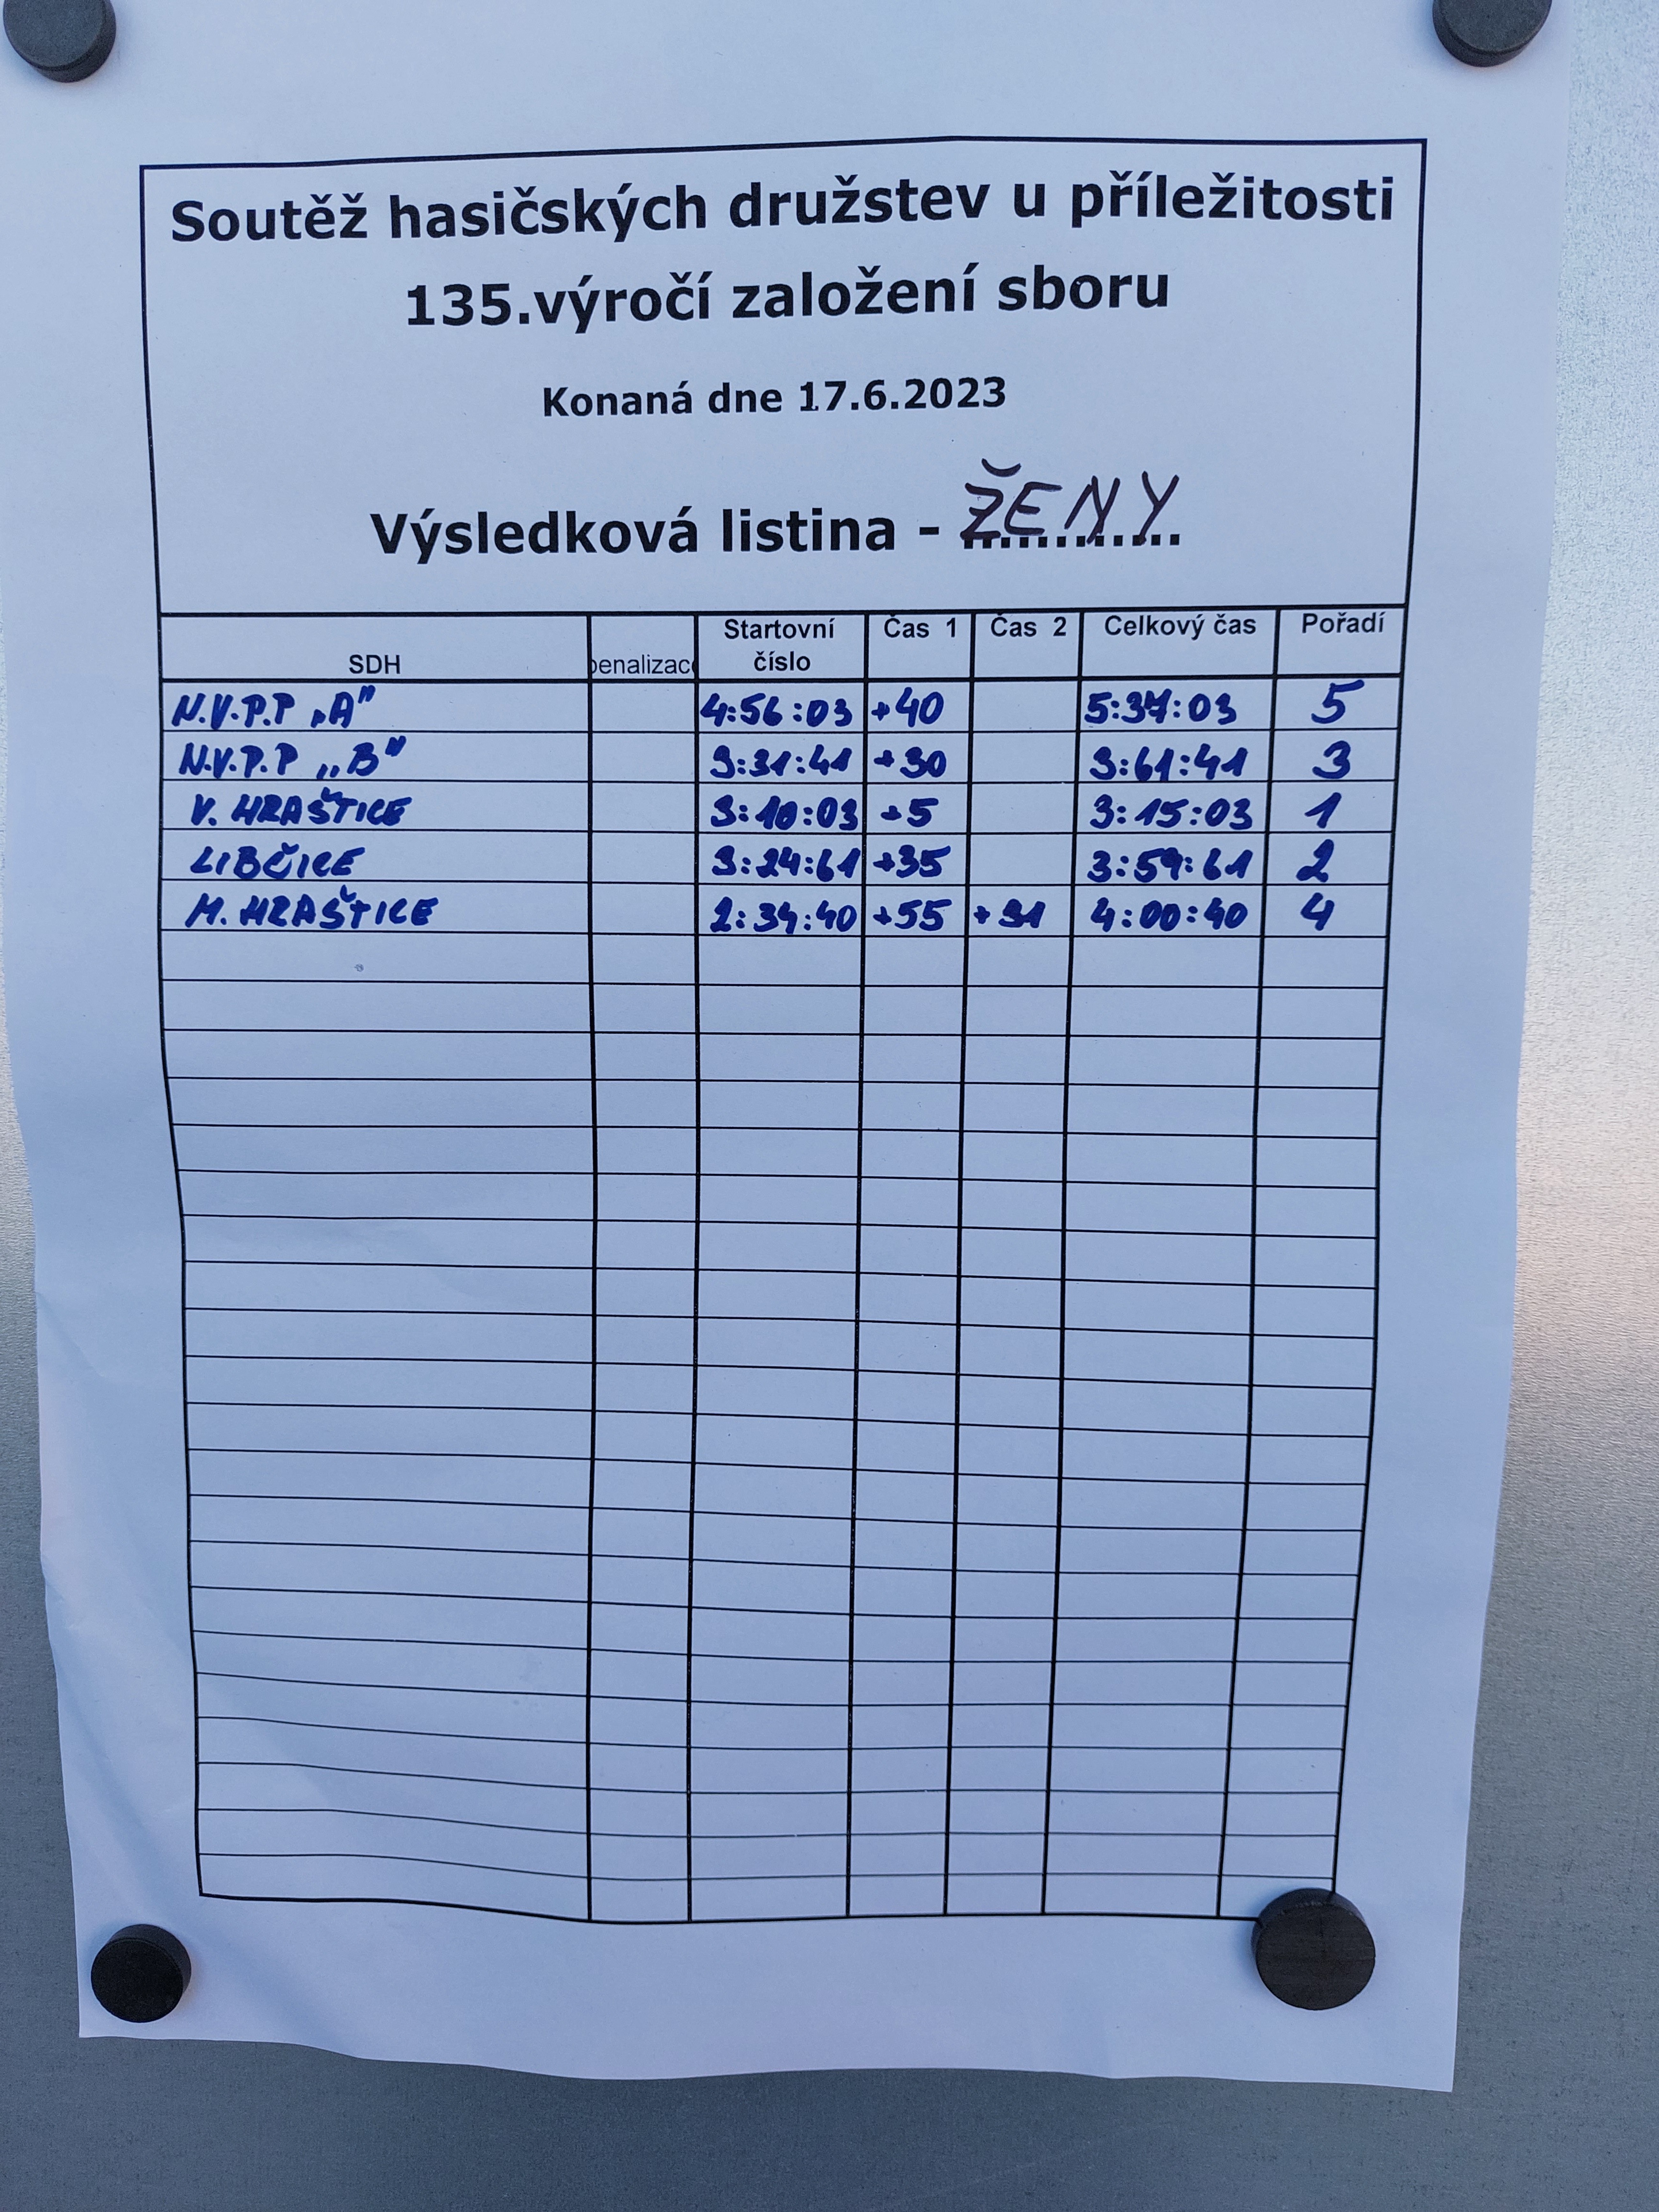 Soutěž hasičských družstev u příležitosti
135.výročí založení sboru
Konaná dne 17.6.2023
Výsledková listina - ŽENY
SDH penalizac Startovní číslo Čas 1 Čas 2 Celkový čas Pořadí
N.V.P.P „A" 4:56:03 +40 5:37:03 5
N.V.P.P „B" 3:31:41 +30 3:61:41 3
V. HRAŠTICE 3:10:03 +5 3:15:03 1
LIBČICE 3:24:61 +35 3:59:61 2
M. HRAŠTICE 2:34:40 +55 + 31 4:00:40 4